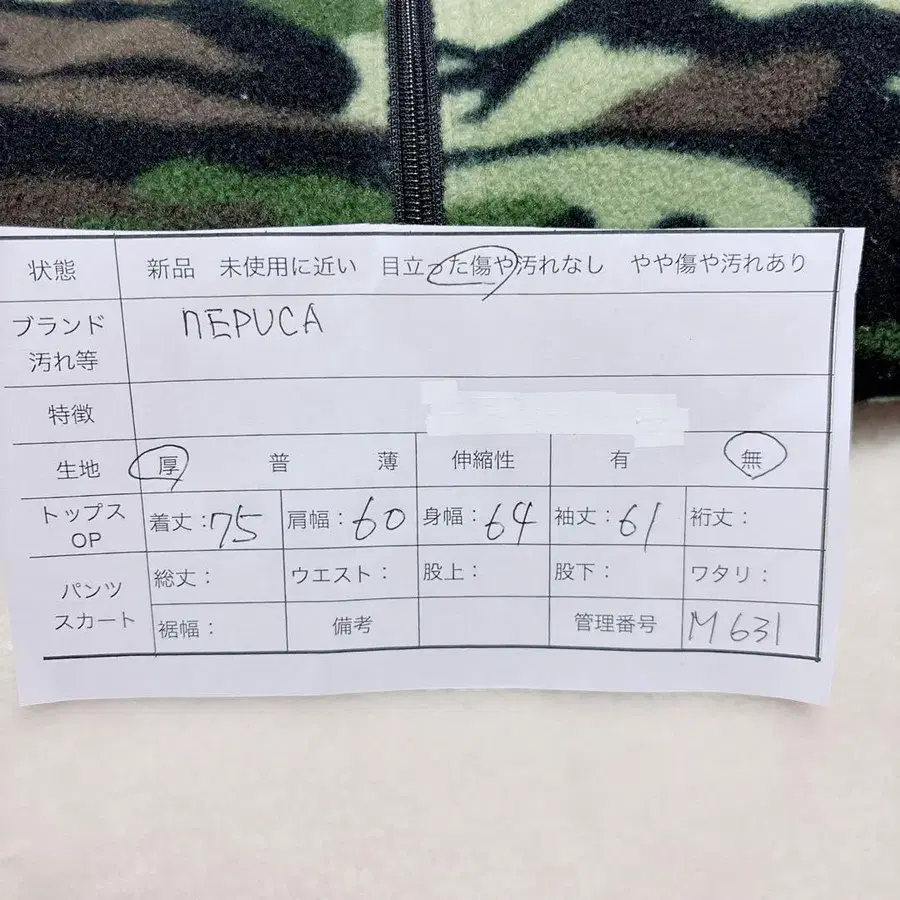 状態 新品 未使用に近い 目立った傷や汚れなし やや傷や汚れあり
ブランド nEPUCA
汚れ等
特徴
生地 厚 普 薄 伸縮性 有 無
トップス OP 着丈:75 肩幅:60 身幅:64 袖丈:61 裄丈:
パンツ スカート 総丈: ウエスト: 股上: 股下: ワタリ:
裾幅: 備考 管理番号 M631